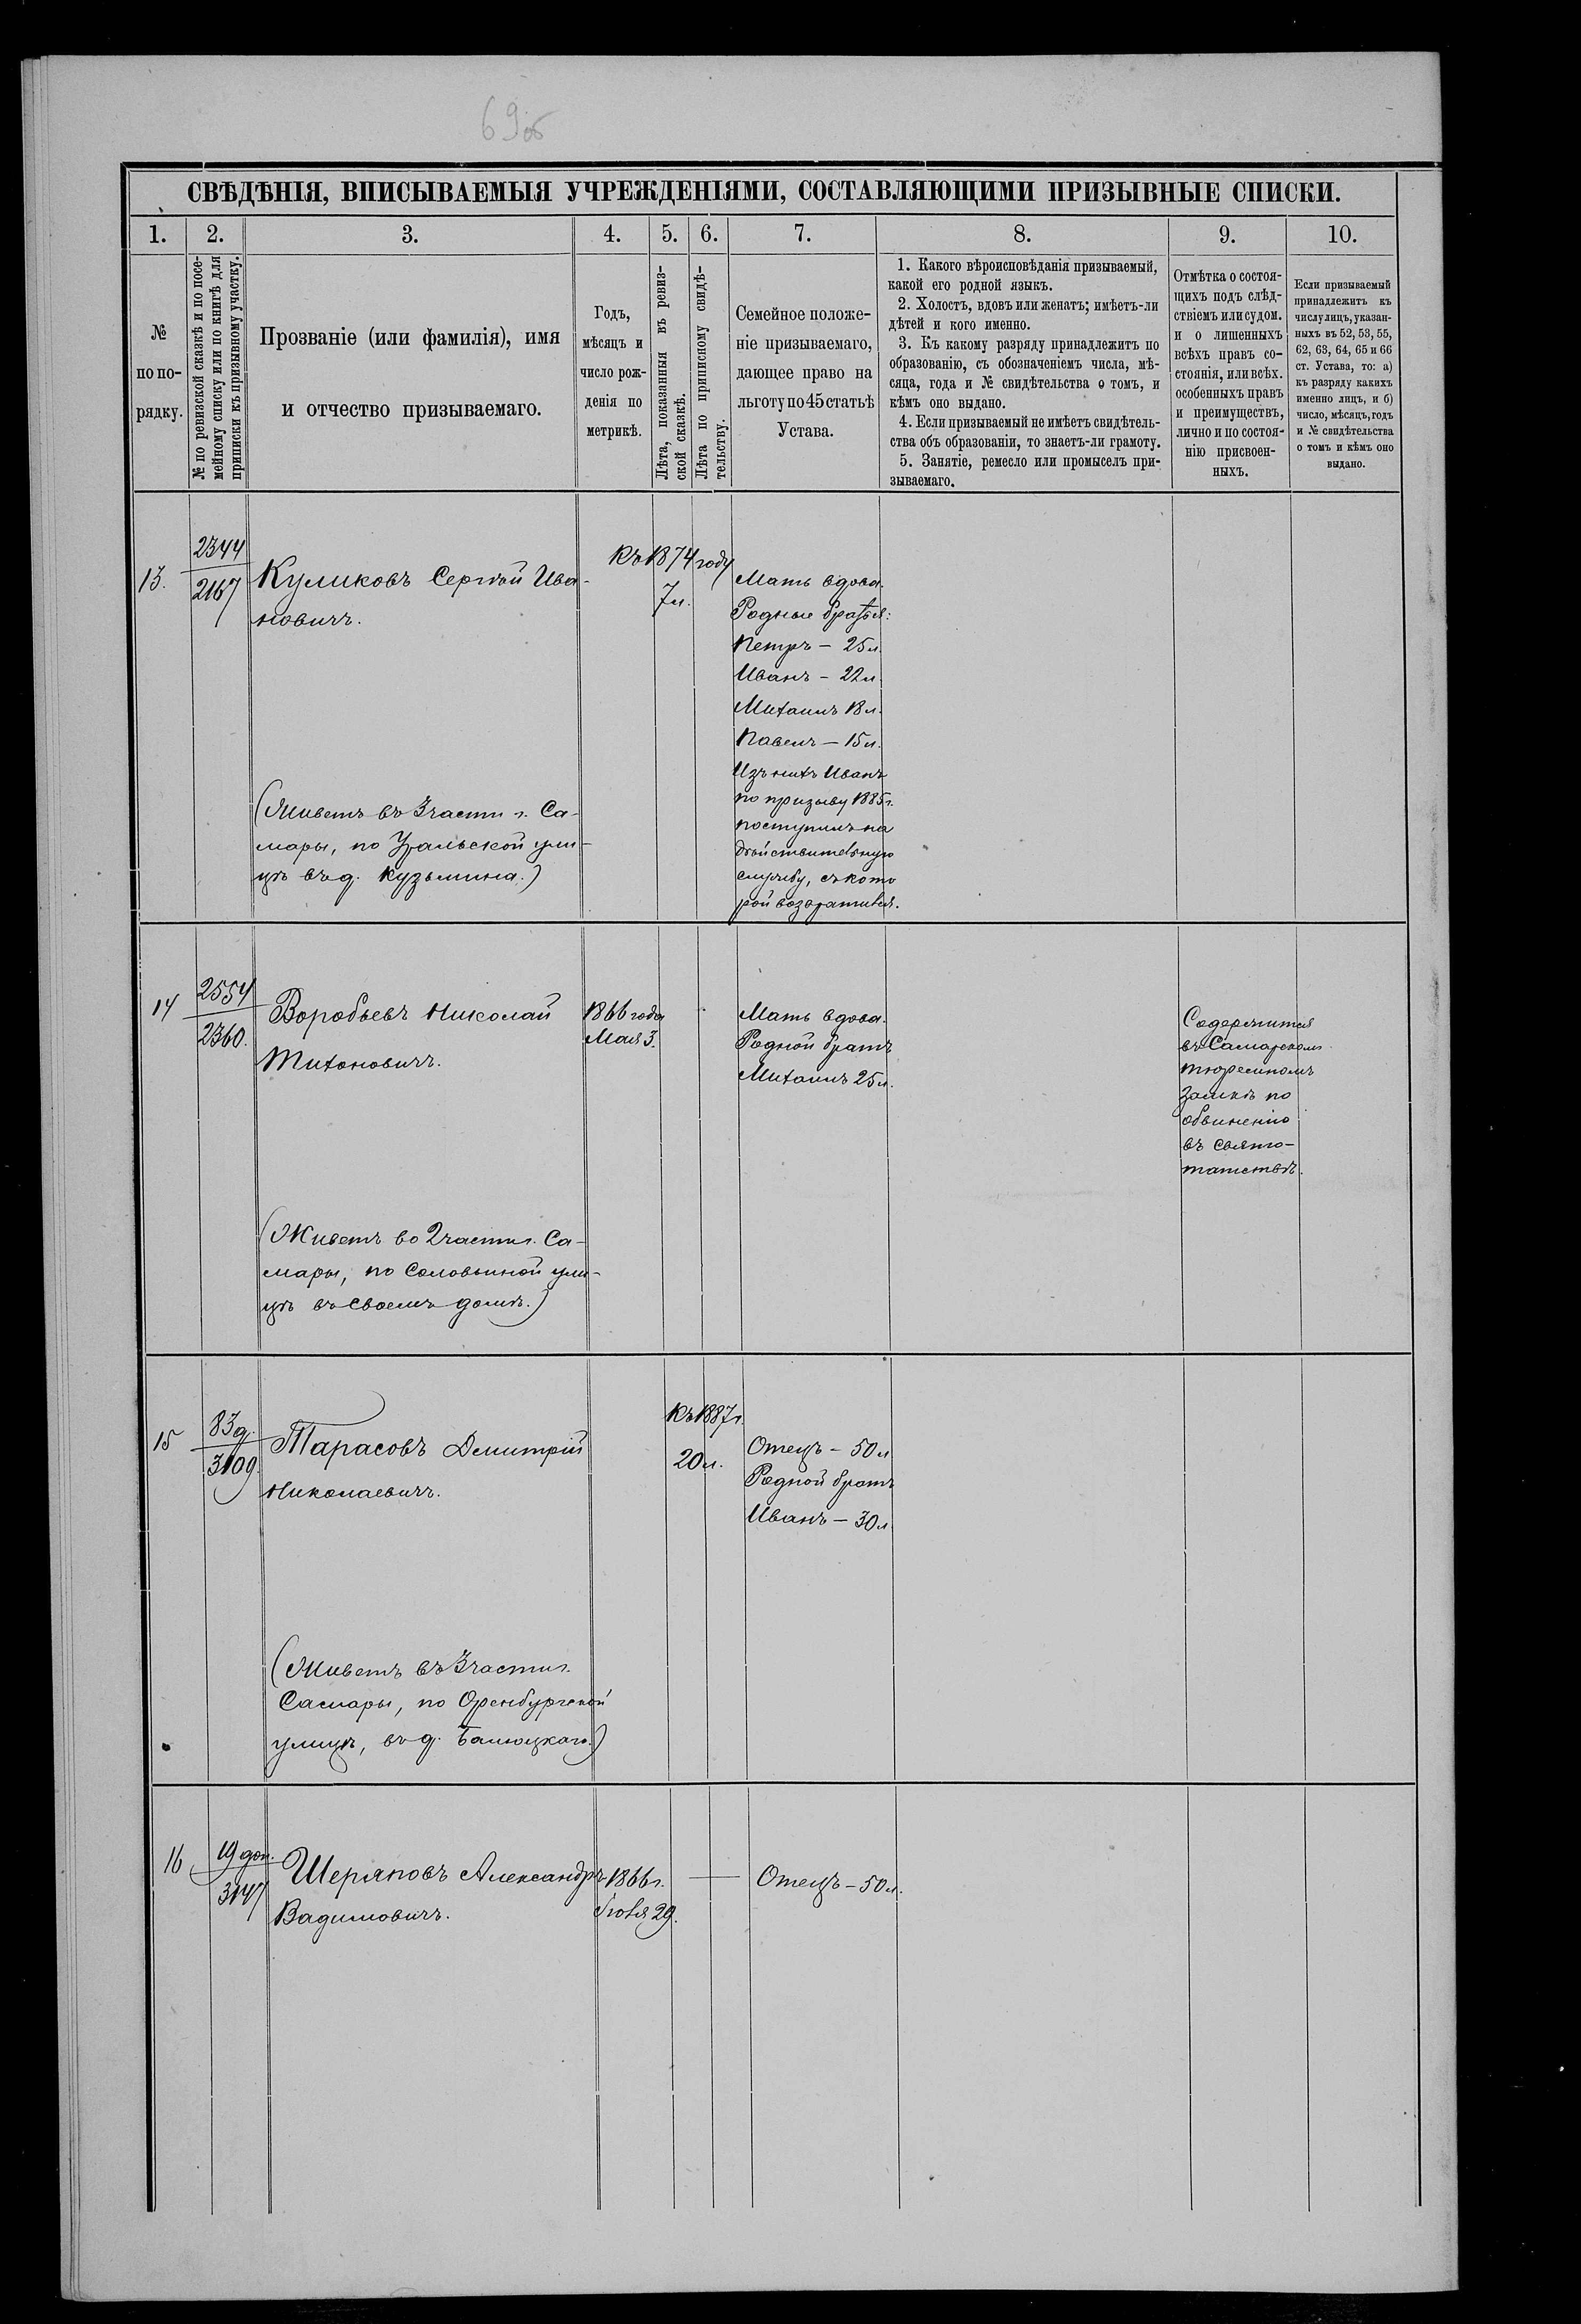 69об
СВѢДѢНІЯ, ВПИСЫВАЕМЫЯ УЧРЕЖДЕНІЯМИ, СОСТАВЛЯЮЩИМИ ПРИЗЫВНЫЕ СПИСКИ.
1.
2.
3.
4.
5.
6.
7.
8.
9.
10.
№
по по-
рядку.
№ по ревизской сказкѣ и по посе-
мейному списку или по книгѣ для
приписки къ призывному участку.
Прозваніе (или фамилія), имя
и отчество призываемаго.
Годъ,
мѣсяцъ и
число рож-
денія по
метрикѣ.
Лѣта, показанныя въ ревиз-
ской сказкѣ.
Лѣта по приписному свидѣ-
тельству.
Семейное положе-
ніе призываемаго,
дающее право на
льготу по 45 статьѣ
Устава.
1. Какого вѣроисповѣданія призываемый,
какой его родной языкъ.
2. Холостъ, вдовъ или женатъ; имѣетъ-ли
дѣтей и кого именно.
3. Къ какому разряду принадлежитъ по
образованію, съ обозначеніемъ числа, мѣ-
сяца, года и № свидѣтельства о томъ, и
кѣмъ оно выдано.
4. Если призываемый не имѣетъ свидѣтель-
ства объ образованіи, то знаетъ-ли грамоту.
5. Занятіе, ремесло или промыселъ при-
зываемаго.
Отмѣтка о состоя-
щихъ подъ слѣд-
ствіемъ или судом.
и о лишенныхъ
всѣхъ правъ со-
стоянія, или всѣх.
особенныхъ правъ
и преимуществъ,
лично и по состоя-
нію присвоен-
ныхъ.
Если призываемый
принадлежитъ къ
числу лицъ, указан-
ныхъ въ 52, 53, 55,
62, 63, 64, 65 и 66
ст. Устава, то: а)
къ разряду какихъ
именно лицъ, и б)
число, мѣсяцъ, годъ
и № свидѣтельства
о томъ и кѣмъ оно
выдано.
13.
2344
2167
Куликовъ Сергѣй Ива-
новичъ.
(Живетъ въ 3 части г. Са-
мары, по Уральской ули-
цѣ въ д. Кузьмина.)
Къ 1874 году
7 л.
Мать вдова.
Родные братья:
Петръ — 25 л.
Иванъ — 22 л.
Михаилъ 18 л.
Павелъ — 15 л.
Изъ нихъ Иванъ
по призыву 1885 г.
поступилъ на
дѣйствительную
службу, съ кото
рой возвратился.
14
2554
2360.
Воробьевъ Николай
Тихоновичъ.
(Живетъ во 2 части г. Са-
мары, по Соловьиной ули-
цѣ въ своемъ домѣ.)
1866 года
Мая 3.
Мать вдова.
Родной братъ
Михаилъ 25 л.
Содержится
въ Самарскомъ
тюремномъ
замкѣ по
обвиненію
въ свято-
татствѣ.
15
83 д.
3109.
Тарасовъ Дмитрій
Николаевичъ.
(Живетъ въ 3 части г.
Самары, по Оренбургской
улицѣ, въ д.
Къ 1887 г.
20 л.
Отецъ — 50 л.
Родной братъ
Иванъ — 30 л.
16
19 доп.
3147
Александръ
Вадимовичъ.
1866 г.
29.
Отецъ — 50 л.